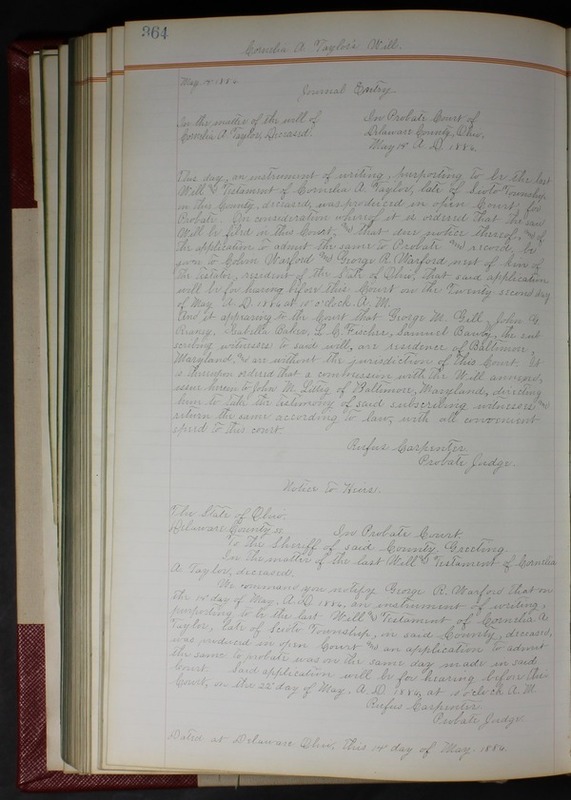 364
Cornelia A. Taylor's Will.
May 14 1886
Journal Entry
In the matter of the will of
Cornelia A Taylor, Deceased.
In Probate Court of
Delaware County, Ohio.
May 14 A. D. 1886.
This day, an instrument of writing, purporting to be the last
Will & Testament of Cornelia A. Taylor, late of Scioto Township,
in this County, deceased, was produced in open Court, for
Probate. On consideration whereof it is ordered that the said
Will be filed in this Court, and that due notice thereof, and of
the application to admit the same to Probate and record, be
given to Warford and George R. Warford next of kin of
the testator, resident of the State of Ohio, that said application
will be for hearing before this Court on the Twenty second day
of May A. D. 1886 at 10 o'clock A. M.
And it appearing to the Court that George M. Gill, John G.
Isabella L. C. Fischer, Samuel the sub
scribing witnesses to said will, are residence of Baltimore
Maryland, and are without the jurisdiction of this Court. It
is thereupon ordered that a commission with the Will annexed,
issue herein to John M. Littig of Baltimore, Maryland, directing
him to take the testimony of said subscribing witnesses, and
return the same according to law, with all convenient
speed to this court.
Rufus Carpenter
Probate Judge.
Notice to Heirs.
The State of Ohio.
Delaware County ss. In Probate Court
To the Sheriff of said County, Greeting.
In the matter of the last Will & Testament of Cornelia
A Taylor, deceased.
We command you notify George R. Warford that on
the 14 day of May, A. D. 1886, an instrument of writing,
purporting to be the last Will and Testament of Cornelia A.
Taylor, late of Scioto Township, in said County, deceased,
was produced in open Court and an application to admit
the same to probate was on the same day made in said
Court. Said application will be for hearing before this
Court, on the 22 day of May, A. D. 1886, at 10 o'clock A. M.
Rufus Carpenter
Probate Judge.
Dated at Delaware Ohio, this 14 day of May. 1886.